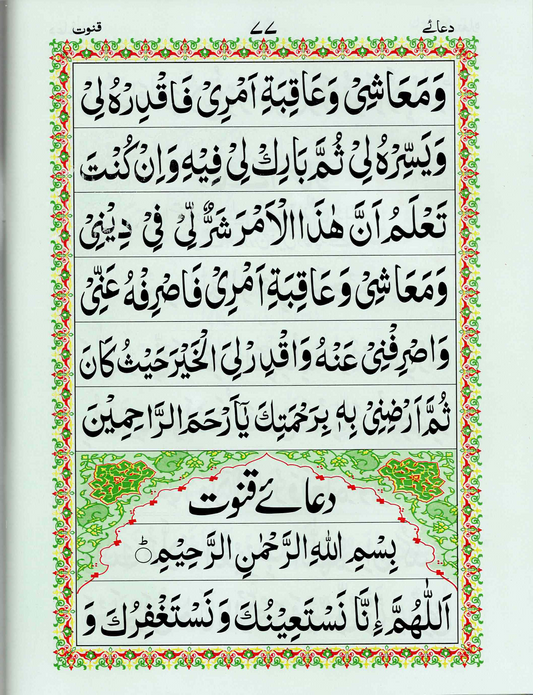 دعائے ۷۷ قنوت
وَمَعَاشِیْ وَعَاقِبَةِ اَمْرِیْ فَاقْدِرْهُ لِیْ
وَيَسِّرْهُ لِیْ ثُمَّ بَارِكْ لِیْ فِيْهِ وَاِنْ كُنْتَ
تَعْلَمُ اَنَّ هٰذَا الْاَمْرَ شَرٌّ لِّیْ فِیْ دِيْنِیْ
وَمَعَاشِیْ وَعَاقِبَةِ اَمْرِیْ فَاصْرِفْهُ عَنِّیْ
وَاصْرِفْنِیْ عَنْهُ وَاقْدِرْ لِیَ الْخَيْرَ حَيْثُ كَانَ
ثُمَّ اَرْضِنِیْ بِهٖ بِرَحْمَتِكَ يَآ اَرْحَمَ الرَّاحِمِيْنَ
دعائے قنوت
بِسْمِ اللهِ الرَّحْمٰنِ الرَّحِيْمِ
اَللّٰهُمَّ اِنَّا نَسْتَعِيْنُكَ وَنَسْتَغْفِرُكَ وَ